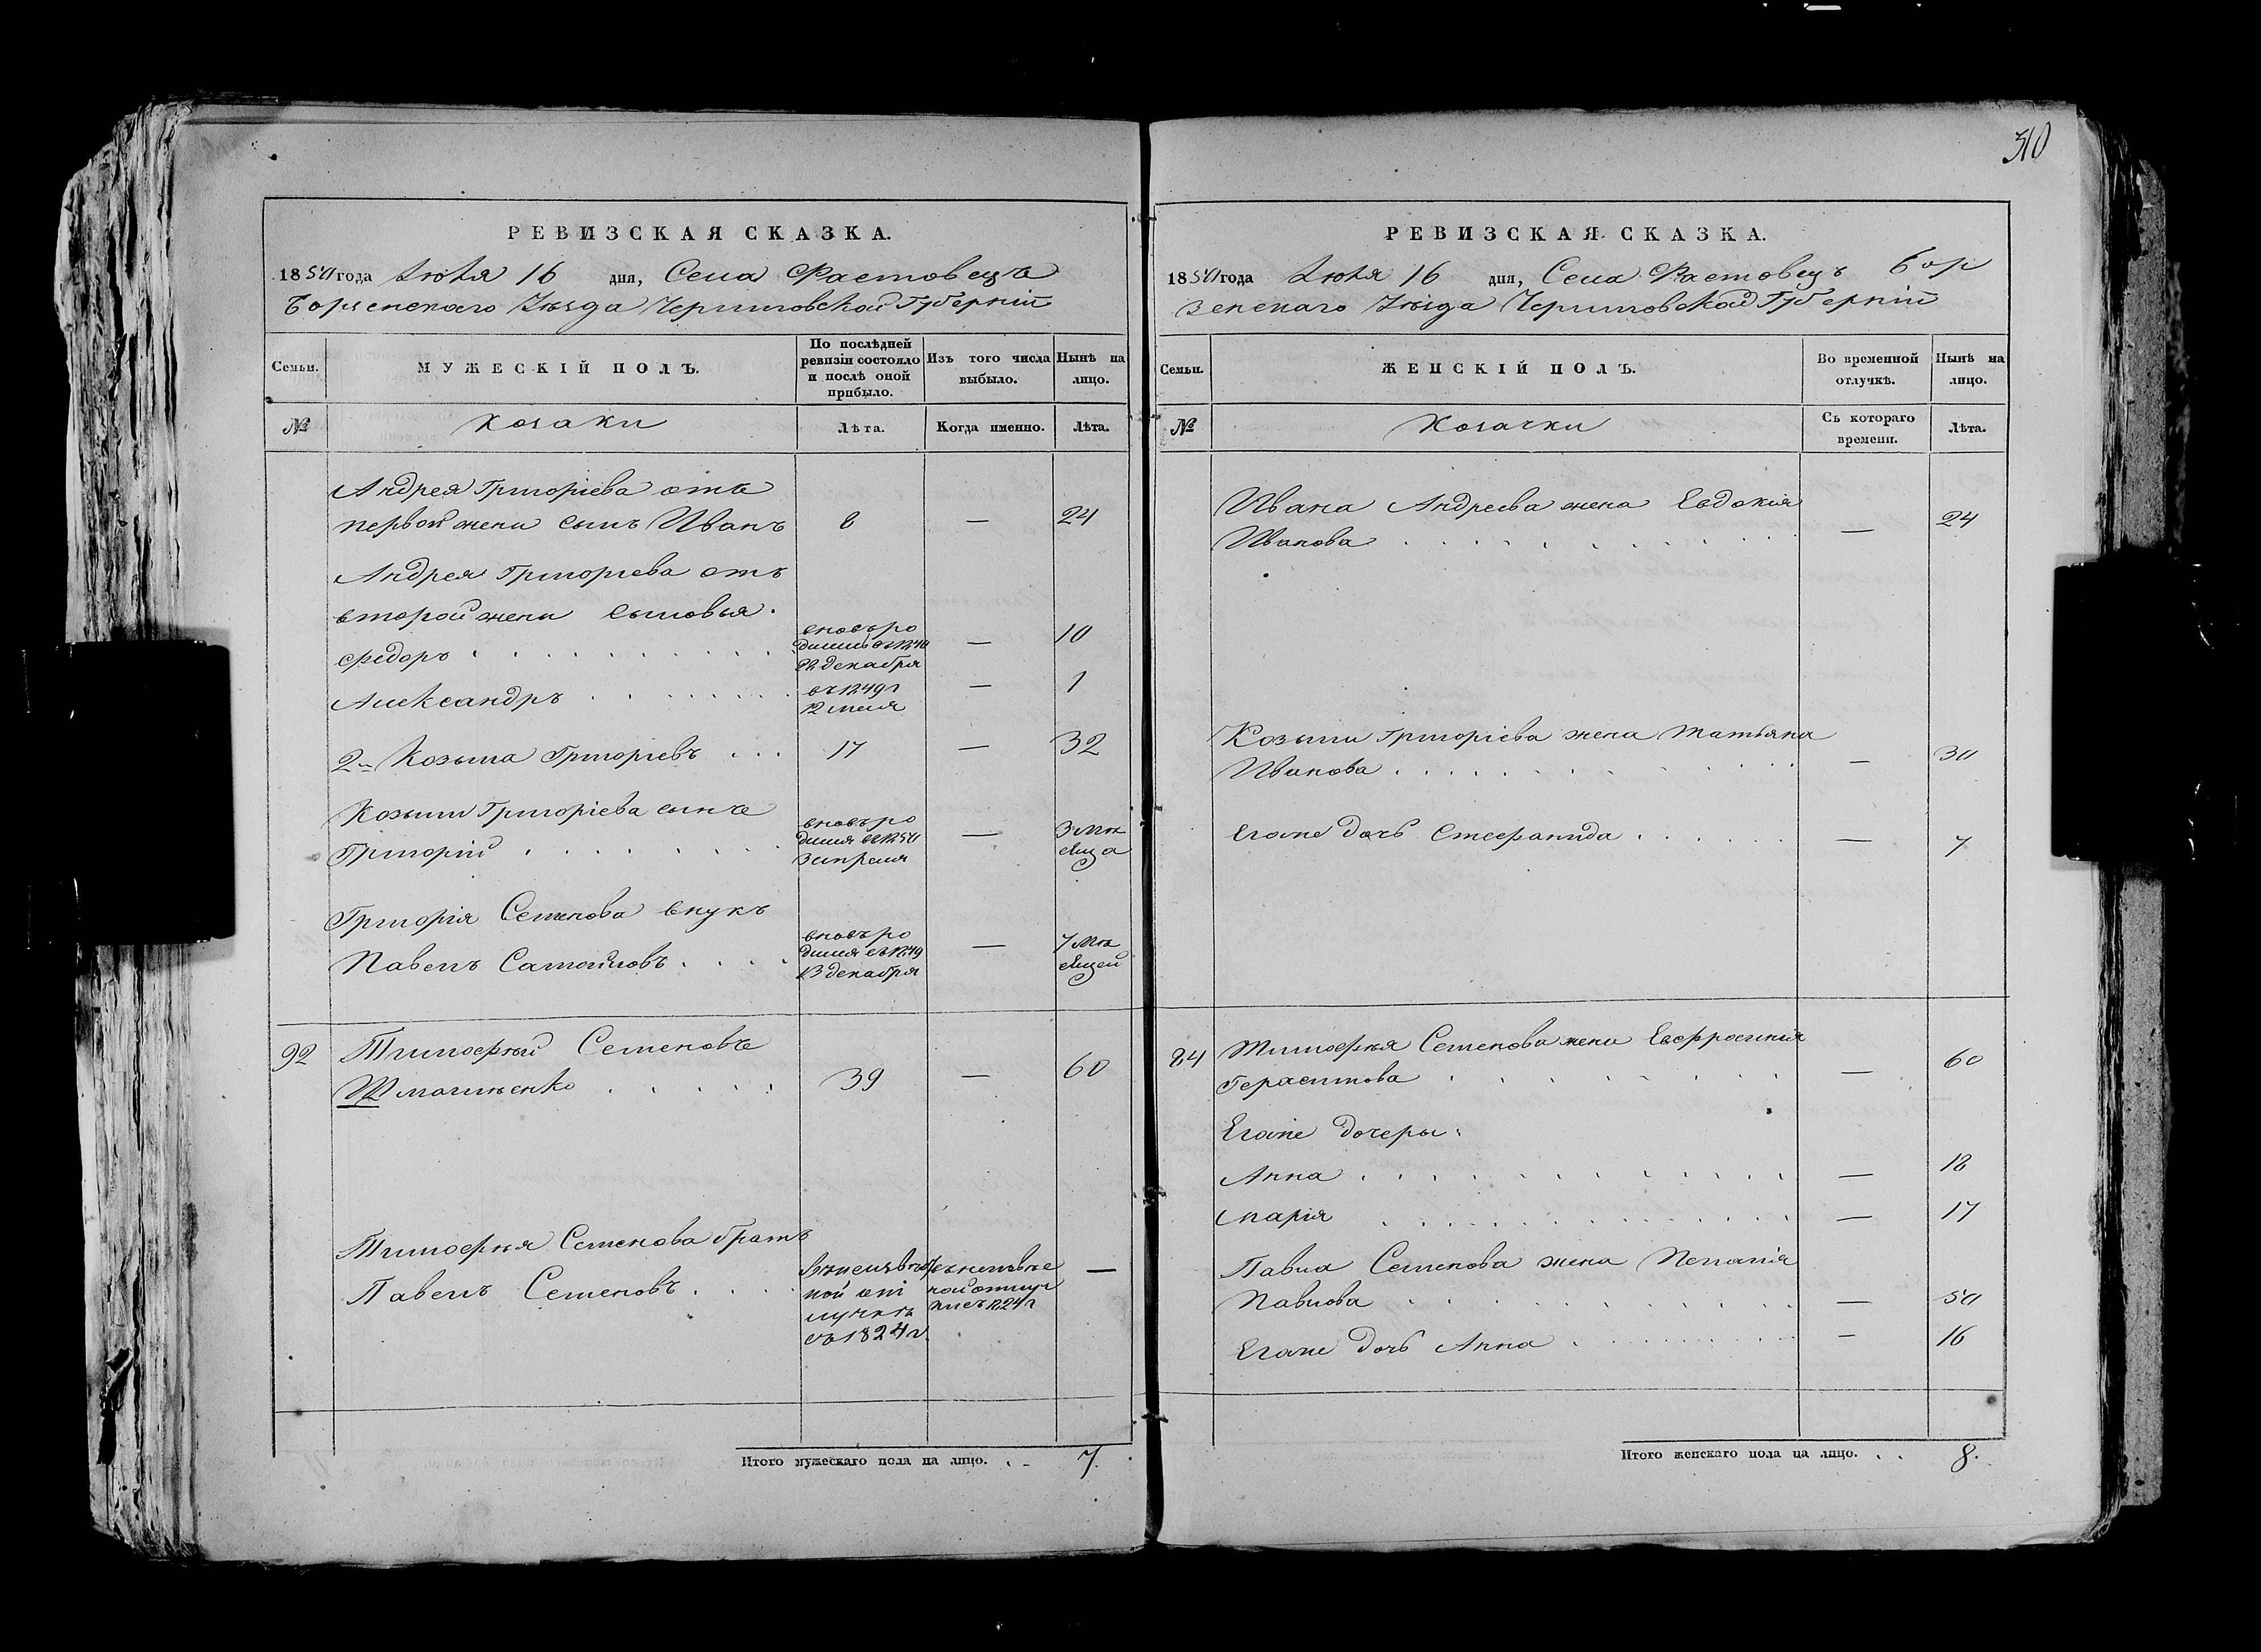 310
РЕВИЗСКАЯ СКАЗКА.
1850 года Іюля 16 дня, Села Фастовецъ
Борзенскаго Уѣзда Черниговской Губерніи
Семьи.
МУЖЕСКІЙ ПОЛЪ.
По послѣдней ревизіи состояло и послѣ оной прибыло.
Изъ того числа выбыло.
Нынѣ на лицо.
№
Козаки
Лѣта.
Когда именно.
Лѣта.
Андрея Григоріева отъ
первой жены сынъ Иванъ 8 — 24
Андрея Григоріева отъ
второй жены сыновья.
Федоръ вновь ро
дился въ 1840
22 декабря — 10
Александръ въ 1849 г
12 — 1
2й Козьма Григорьевъ 17 — 32
Козьмы Григоріева сынъ
Григорій вновь ро
дился въ 1850
3 апреля — 3 мѣ
сяца
Григорія Семенова внукъ
Павелъ Самойловъ вновь ро
дился въ 1849
13 декабря — 7 мѣ
сяцей
92 Тимофѣй Семеновъ
39 — 60
Тимофѣя Семенова братъ
Павелъ Семеновъ
ной от
лучкѣ
съ 1824 г.
съ 1824 г —
Итого мужескаго пола на лицо. 7.
РЕВИЗСКАЯ СКАЗКА.
1850 года Іюля 16 дня, Села Фастовецъ Бор
зенскаго Уѣзда Черниговской Губерніи
Семьи.
ЖЕНСКІЙ ПОЛЪ.
Во временной отлучкѣ.
Нынѣ на лицо.
№
Козачки
Съ котораго времени.
Лѣта.
Ивана Андреева жена Евдокія
Иванова — 24
Козьмы Григоріева жена Татьяна
Иванова — 30
Егоже дочь Стефанида — 7
84 Тимофѣя Семенова жена Евфросинія
Герасимова — 60
Егоже дочеры:
Анна — 18
Марія — 17
Павла Семенова жена Меланія
Павлова — 50
Егоже дочь Анна — 16
Итого женскаго пола на лицо. 8.